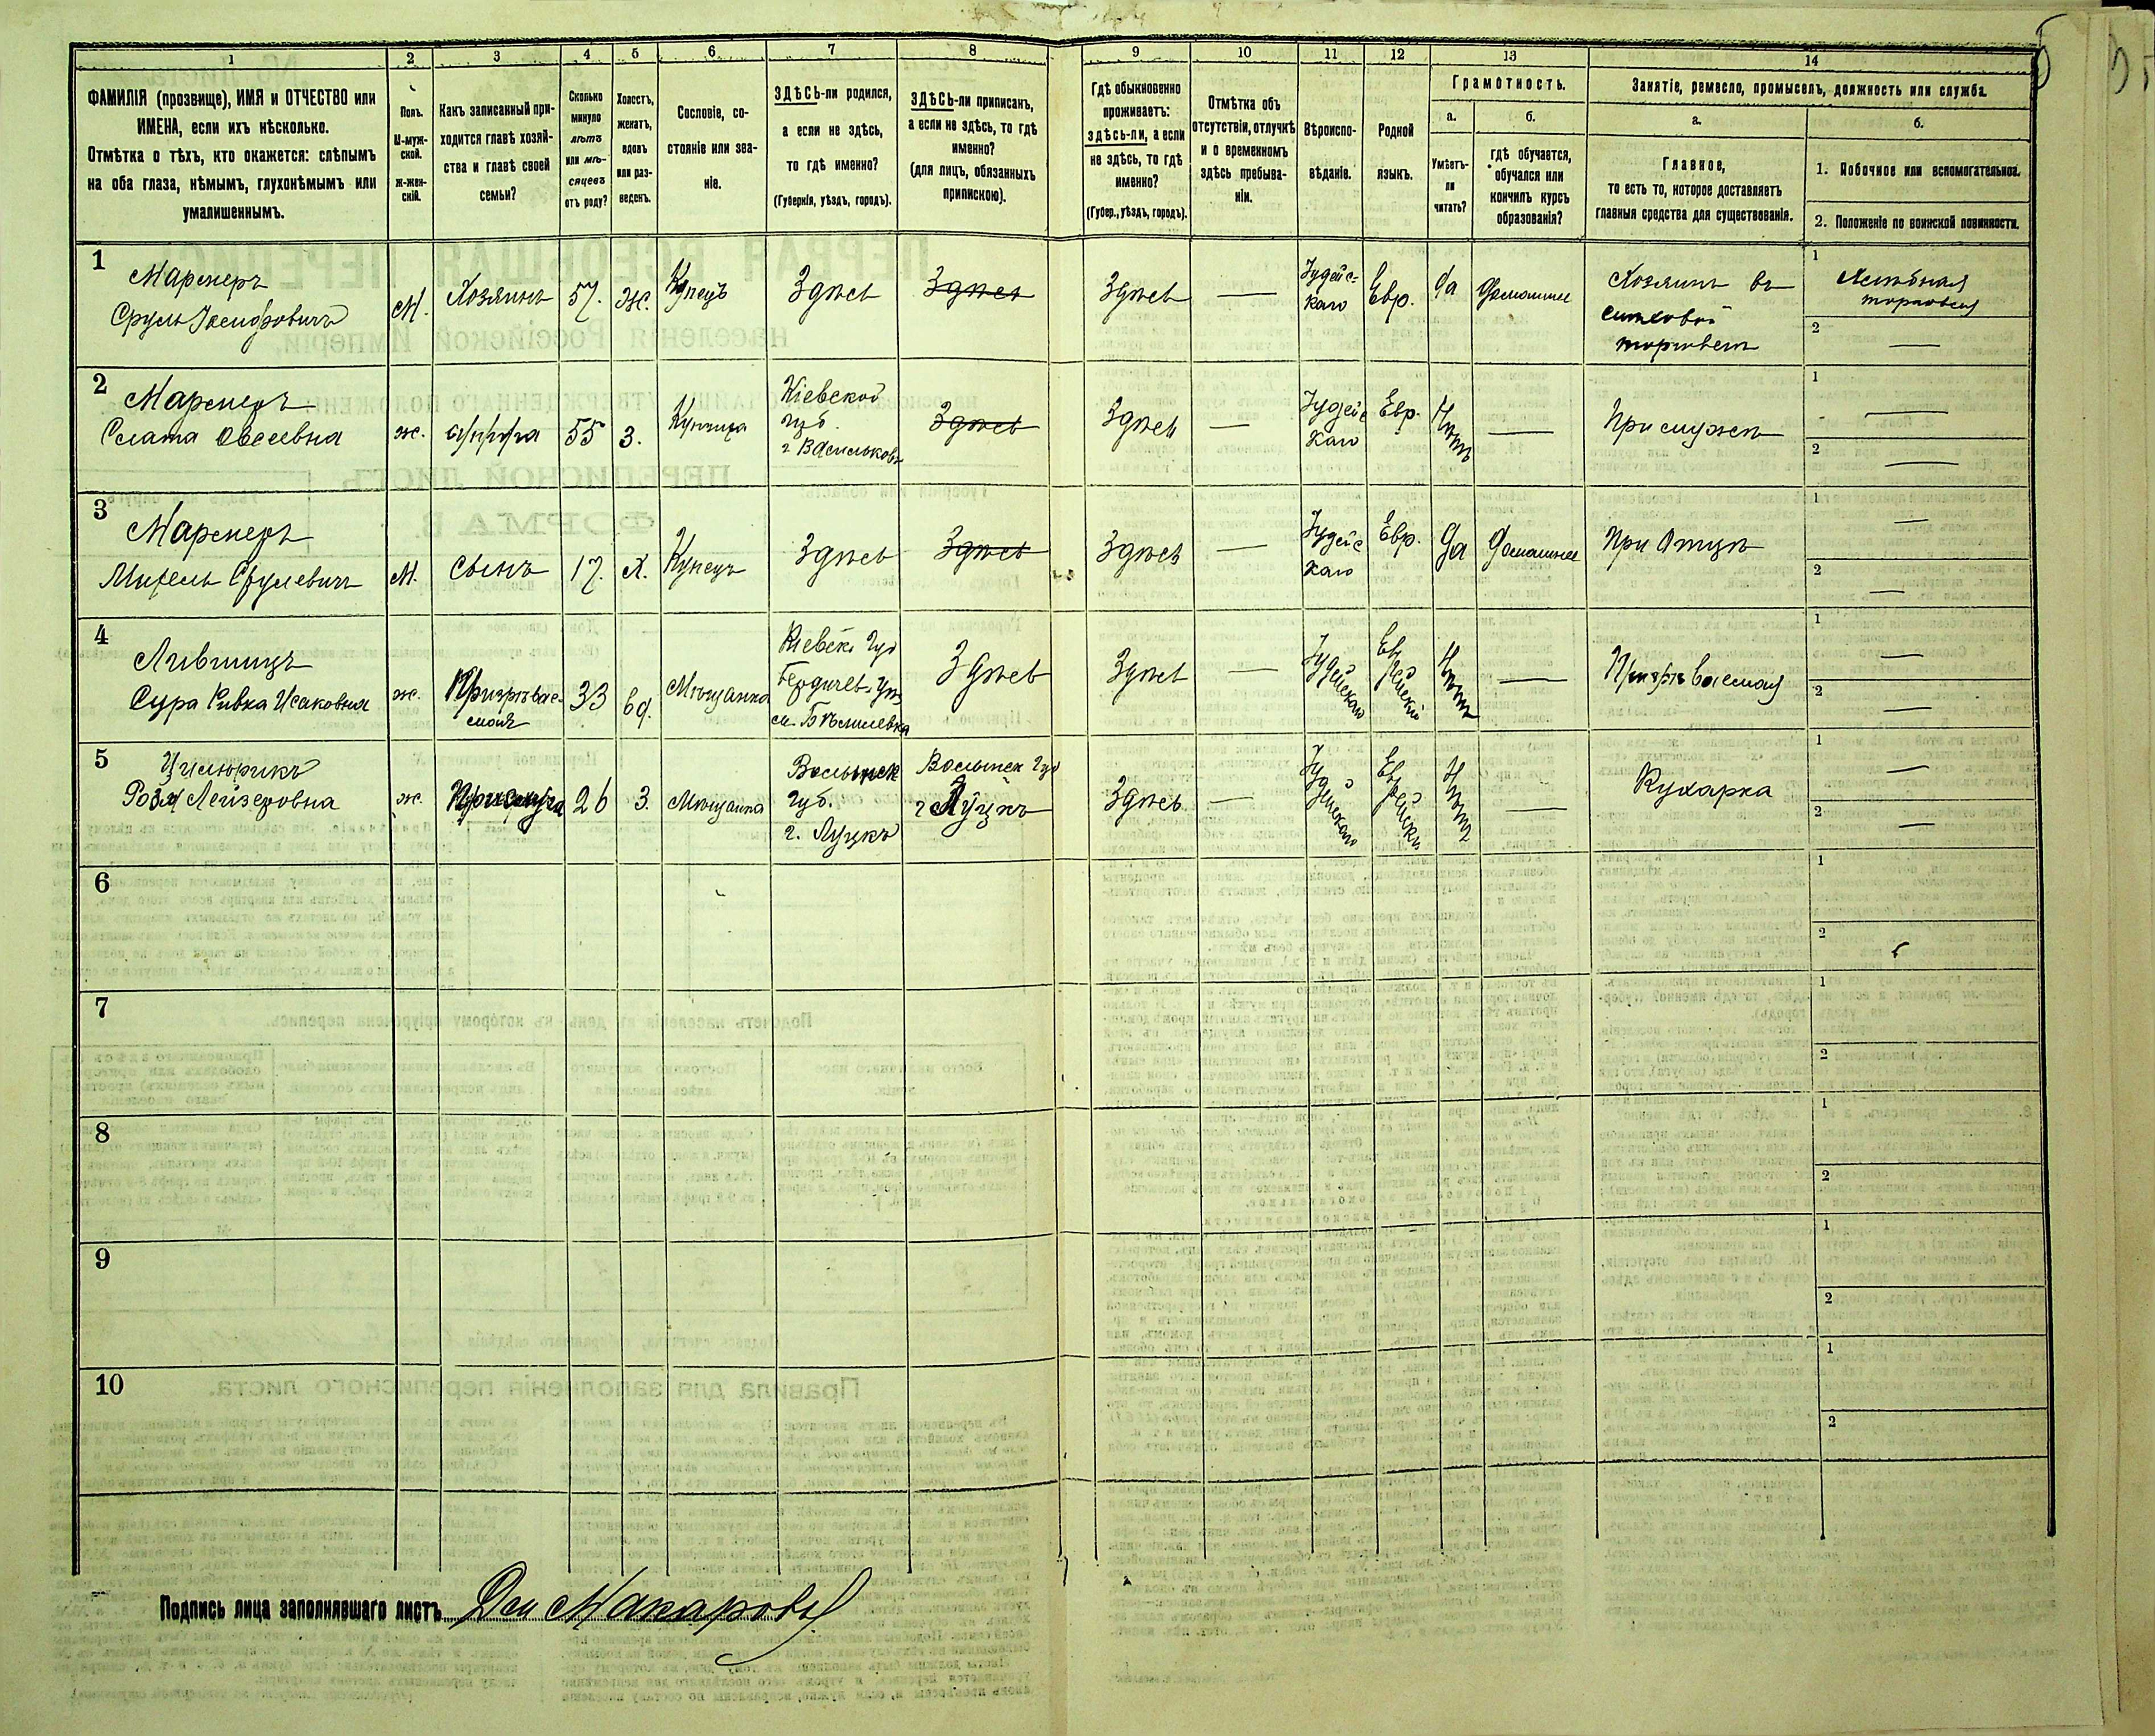 1 2 3 4 5 6 7 8 9 10 11 12 13 14
ФАМИЛІЯ (прозвище), ИМЯ и ОТЧЕСТВО или
ИМЕНА, если ихъ нѣсколько.
Отмѣтка о тѣхъ, кто окажется: слѣпымъ
на оба глаза, нѣмымъ, глухонѣмымъ или
умалишеннымъ.
Полъ.
М-муж-
ской.
Ж-жен-
скій.
Какъ записанный при-
ходится главѣ хозяй-
ства и главѣ своей
семьи?
Сколько
минуло
лѣтъ
или мѣ-
сяцевъ
отъ роду?
Холостъ,
женатъ,
вдовъ
или раз-
веденъ.
Сословіе, со-
стояніе или зва-
ніе.
ЗДѢСЬ-ли родился,
а если не здѣсь,
то гдѣ именно?
(Губернія, уѣздъ, городъ).
ЗДѢСЬ-ли приписанъ,
а если не здѣсь, то гдѣ
именно?
(для лицъ, обязанныхъ
припискою).
Гдѣ обыкновенно
проживаетъ:
здѣсь-ли, а если
не здѣсь, то гдѣ
именно?
(Губер., уѣздъ, городъ).
Отмѣтка объ
отсутствіи, отлучкѣ
и о временномъ
здѣсь пребыва-
ніи.
Вѣроиспо-
вѣданіе.
Родной
языкъ.
Грамотность.
а.
Умѣетъ-
ли
читать?
б.
гдѣ обучается,
обучался или
кончилъ курсъ
образованія?
Занятіе, ремесло, промыселъ, должность или служба.
а.
Главное,
то есть то, которое доставляетъ
главныя средства для существованія.
б.
1. Побочное или вспомогательное.
2. Положеніе по воинской повинности.
1
Сруль Іосифовичъ
М.
Хозяинъ
57.
Ж.
Купецъ
Здѣсь
Здѣсь
Здѣсь
—
Іудейс-
каго
Евр.
Да
Домашнее
Хозяинъ въ
торговлѣ
1 Хлѣбная
торговля
2 —
2
ж.
55
З.
Купчиха
Кіевской
губ.
г Васильковъ
Здѣсь
Здѣсь
—
Іудейс
каго
Евр.
Нѣтъ
—
При мужѣ
1 —
2 —
3
Срулевичъ
М.
Сынъ
17.
Х.
Купецъ
Здѣсь
Здѣсь
Здѣсь
—
Іудейс
каго
Евр.
Да
Домашнее
При Отцѣ
1 —
2 —
4
Лившицъ
Сура Ривка Исаковна
ж.
Призрѣвае-
мая
33
вд.
Мѣщанка
Кіевск. Губ
Бердичев. Уѣз
м. Бѣлиловка
Здѣсь
Здѣсь
—
Іудейскаго
Еврейскій
Нѣтъ
—
Призрѣваемая
1 —
2 —
5
Лейзеровна
ж.
Прислуга
26
З.
Мѣщанка
Волынск
губ.
г. Луцкъ
Волынск Губ
г Луцкъ
Здѣсь
—
Іудейскаго
Еврейскій
Нѣтъ
—
Кухарка
1 —
2 —
6
1
2
7
1
2
8
1
2
9
1
2
10
1
2
Подпись лица заполнявшаго листъ